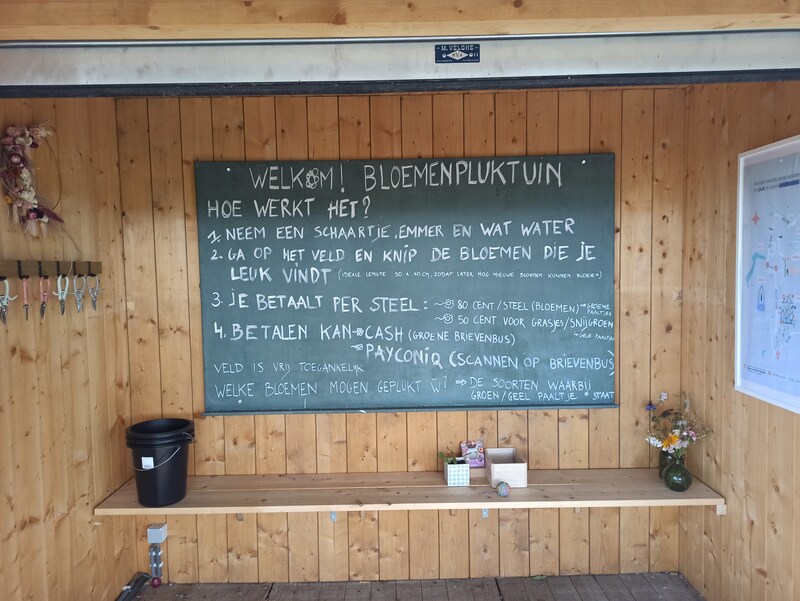 M. VELGHE
WELKOM! BLOEMENPLUKTUIN
HOE WERKT HET?
1. NEEM EEN SCHAARTJE, EMMER EN WAT WATER
2. GA OP HET VELD EN KNIP DE BLOEMEN DIE JE
LEUK VINDT (IDEALE LENGTE 30 A 40 CM, ZODAT LATER NOG NIEUWE BLOEMEN KUNNEN BLOEIEN)
3. JE BETAALT PER STEEL: 80 CENT/STEEL (BLOEMEN) → GROENE PAALTJES
50 CENT VOOR GRASJES/SNIJGROEN → GELE PAALTJES
4. BETALEN KAN CASH (GROENE BRIEVENBUS)
PAYCONIQ (SCANNEN OP BRIEVENBUS
VELD IS VRIJ TOEGANKELIJK
WELKE BLOEMEN MOGEN GEPLUKT W? ⇒ DE SOORTEN WAARBIJ
GROEN/GEEL PAALTJE STAAT